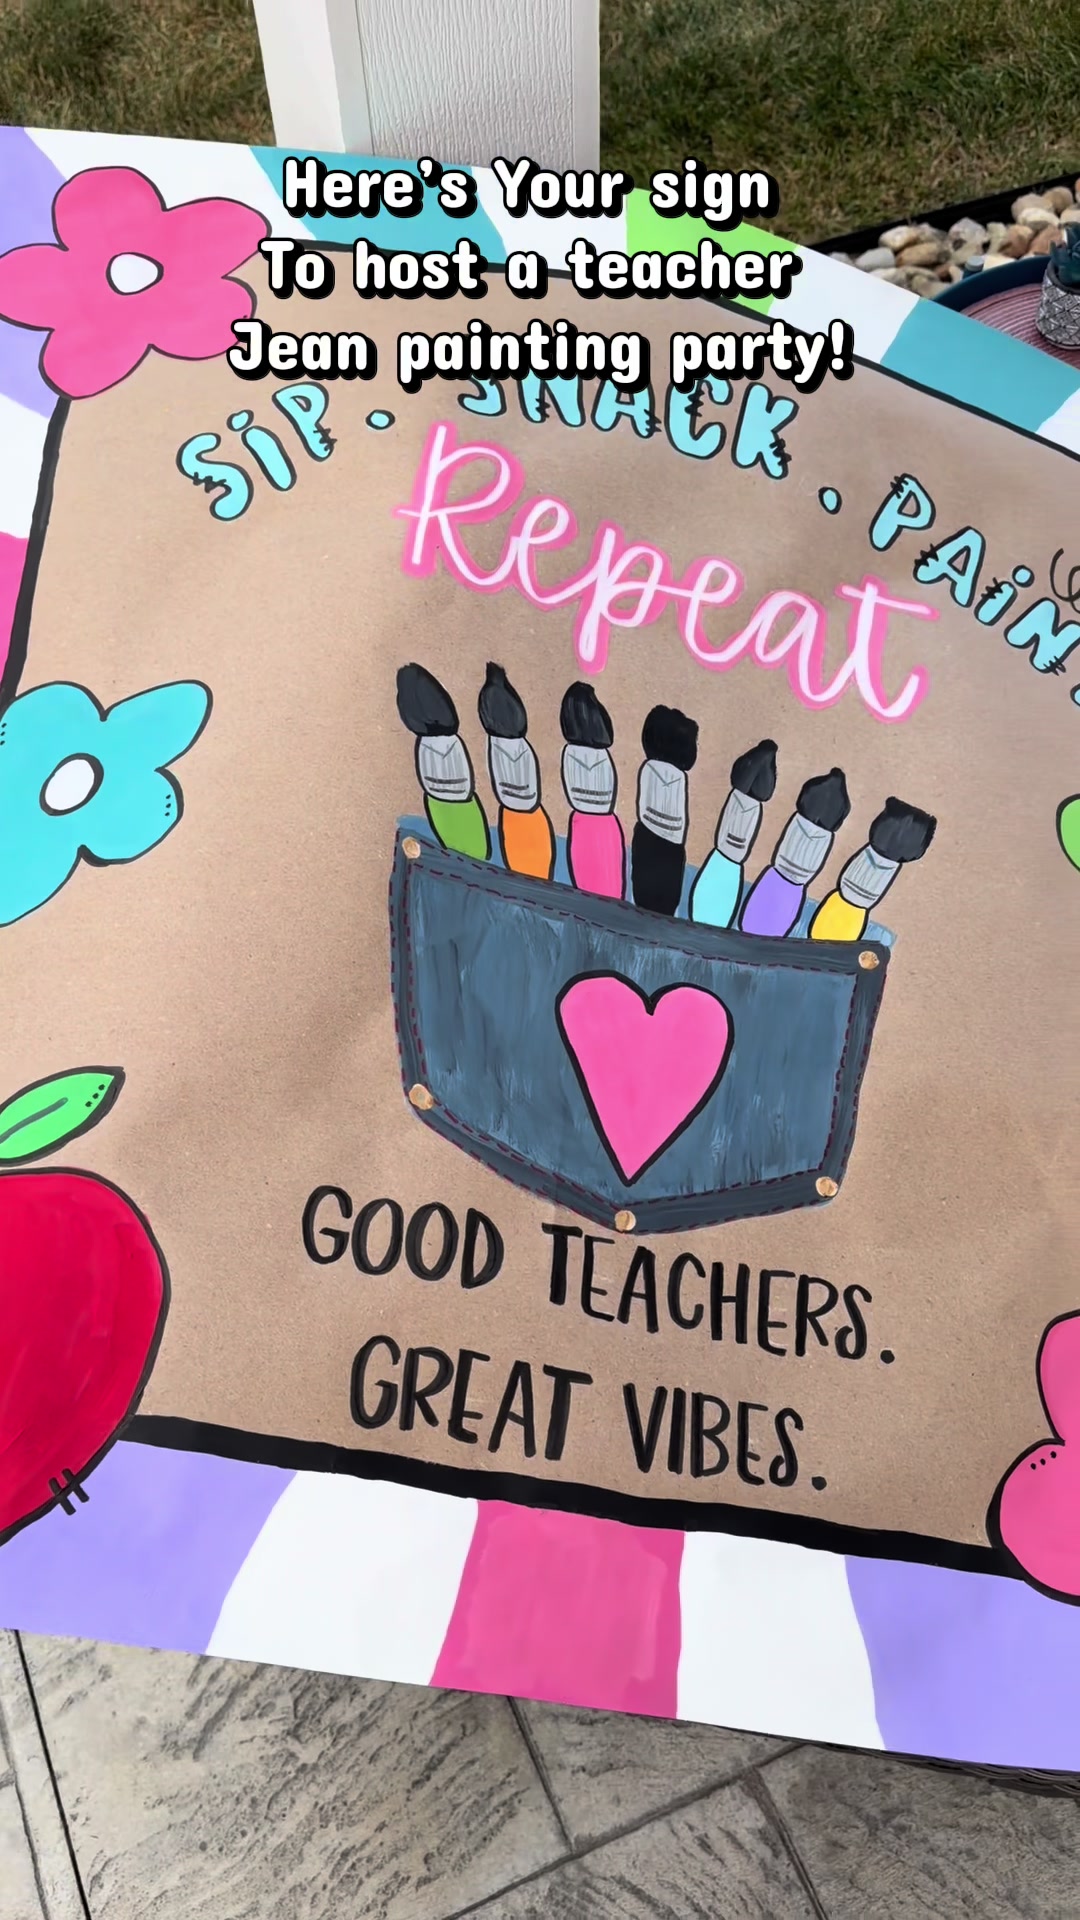 Here's Your sign
To host a teacher
Jean painting party!
SiP. SNACK. PAiNT.
Repeat
GOOD TEACHERS.
GREAT VIBES.